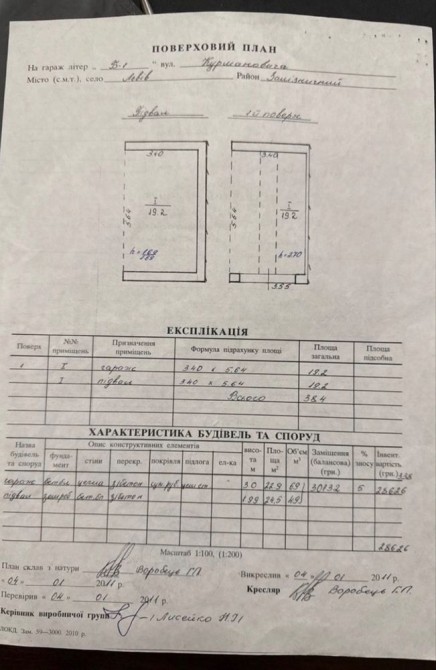 ПОВЕРХОВИЙ ПЛАН
На гараж літер „ Б-1 " вул. Курмановича
Місто (с.м.т.), село Львів Район Залізничний
Підвал 1й поверх
3.40 3.40
5.64 I 19.2 5.64 I 19.2
h=270
3.55
ЕКСПЛІКАЦІЯ
Поверх №№ приміщень Призначення приміщень Формула підрахунку площі Площа загальна Площа підсобна
1 I гараж 3.40 x 5.64 19.2
I підвал 3.40 x 5.64 19.2
Всього 38,4
ХАРАКТЕРИСТИКА БУДІВЕЛЬ ТА СПОРУД
Назва будівель та споруд Опис конструктивних елементів висота м Площа м² Об'єм м³ Заміщення (балансова) (грн.) % зносу Інвент. вартість (грн.)
фундамент стіни перекр. покрівля підлога ел-ка
гараж бетон цегла з/бетон 3.0 69 30132 5 28626
підвал бетон з/бетон 24.5 49
28626
Масштаб 1:100, (1:200)
План склав з натури Воробець Г.П. Викреслив « 04 » 01 2011 р.
« 04 » 01 2011 р. Кресляр Воробець Г.П.
Перевірив « 04 » 01 2011 р.
Керівник виробничої групи Лисейко Н.І
2010 р.